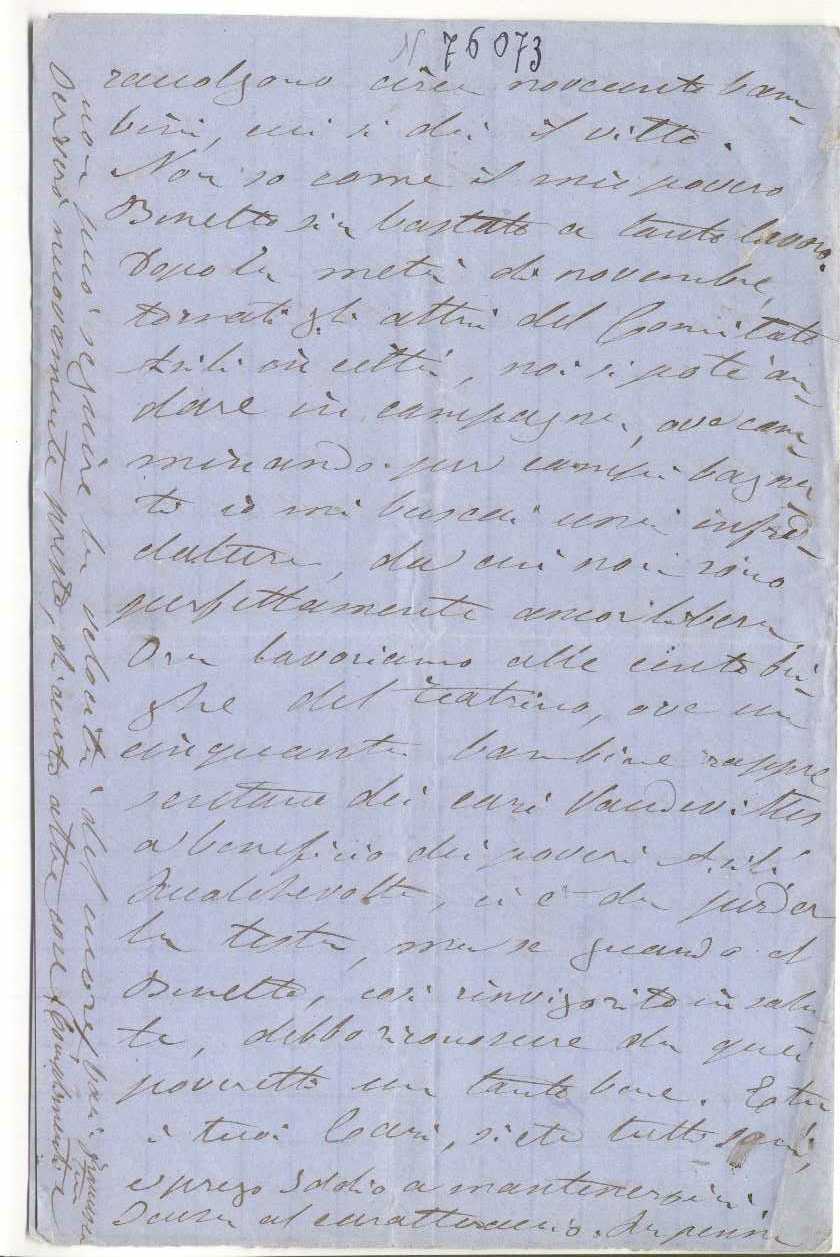 N 76073
raccolgono circa novecento bam-
bini, cui si dà il vitto.
Non so come il mio povero
Benetto sia bastato a tanto lavoro.
Dopo la metà di novembre,
tornati gli altri del Comitato
Asili in città, noi si poté an-
dare in campagna, ove cam
minando per campi bagna
ti io mi buscai una infred-
datura, da cui non sono
perfettamente ancor libera.
Ora lavoriamo alle cento bri-
ghe del teatrino, ove un
cinquanta bambine rappre
sentano dei cari Vaudevilles
a beneficio dei poveri Asili
Qualchevolta, ci è da perder
la testa, ma se guardo al
Benetto, così rinvigorito in salu-
te, debbo riconoscere da quei
poveretti un tanto bene. E tu
i tuoi Cari, siete tutti sani,
e prego Iddio a mantenervi
Scusa al caratteraccio. La penna
non può seguire la velocità del cuore,
Scrivi nuovamente presto, di cento altre cose